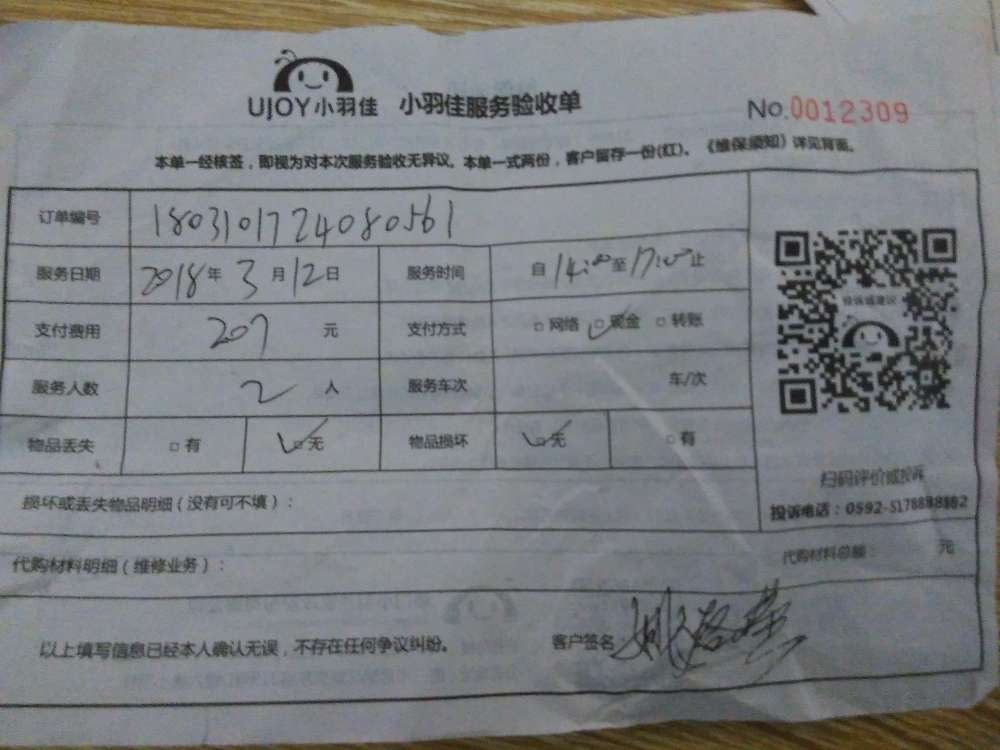 UJOY小羽佳 小羽佳服务验收单
No.0012309
本单一经核签，即视为对本次服务验收无异议。本单一式两份，客户留存一份(红)。《维保须知》详见背面。
订单编号 1803101724080561
服务日期 2018年3月12日 服务时间 自14:00至17:00止
支付费用 207 元 支付方式 □网络 □现金 □转账
服务人数 2 人 服务车次 车/次
物品丢失 □有 □无 物品损坏 □无 □有
投诉或建议
扫码评价或投诉
投诉电话：0592-5178888882
损坏或丢失物品明细（没有可不填）：
代购材料明细（维修业务）： 代购材料总额： 元
以上填写信息已经本人确认无误，不存在任何争议纠纷。 客户签名